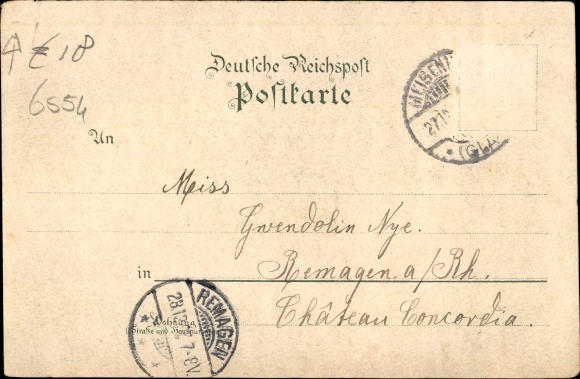 18
6554
Deutsche Reichspost
Postkarte
An
Miss
Gwendolin Nye.
in Remagen. a/Rh.
Château Concordia.
Wohnung
(Straße und Hausnummer)
REMAGEN
7-8V.